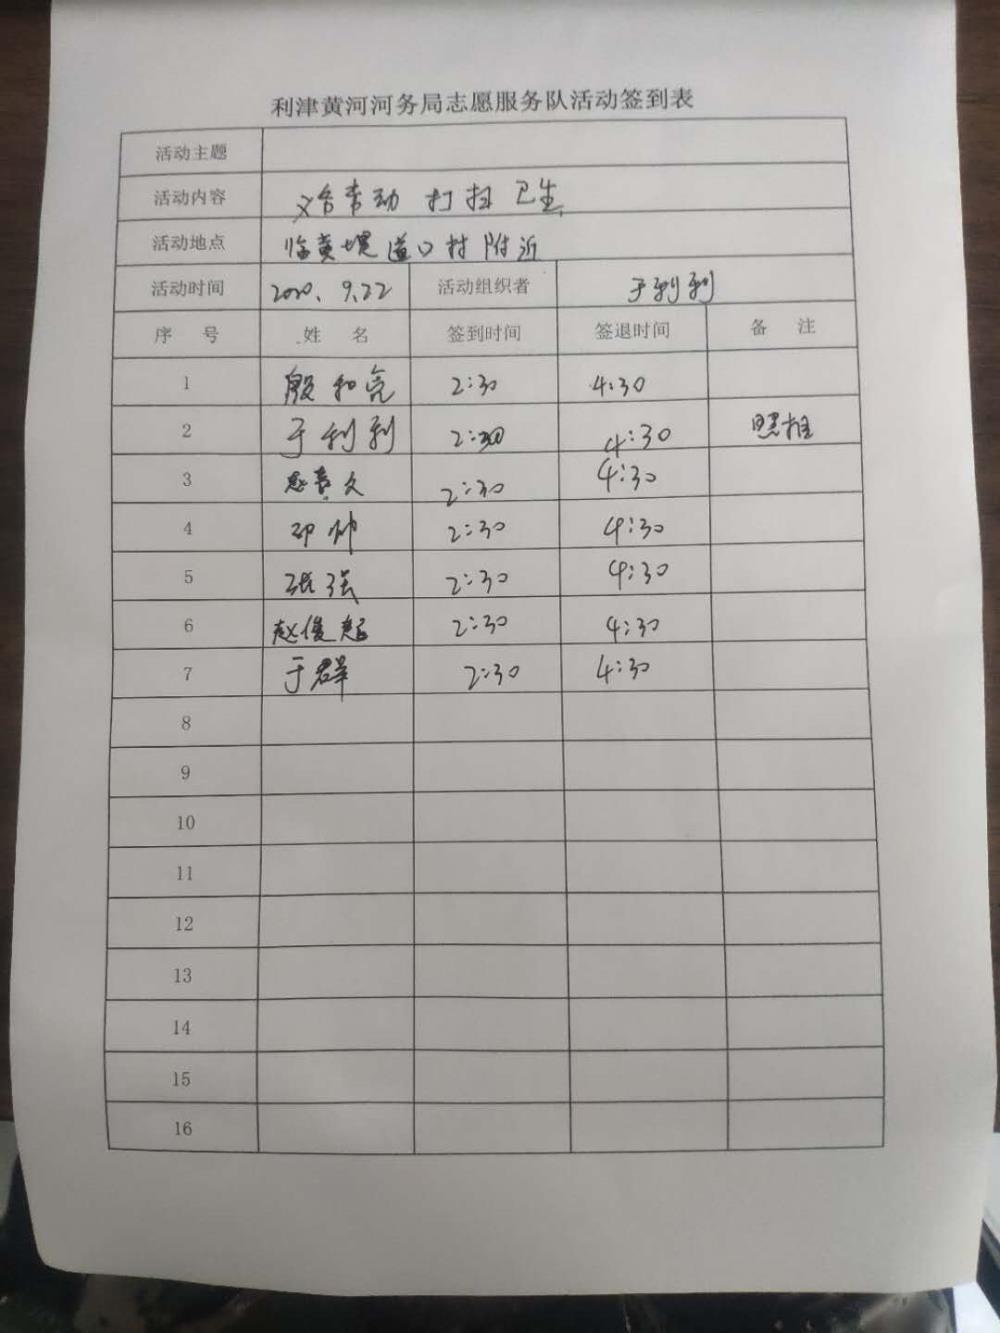 利津黄河河务局志愿服务队活动签到表
活动主题
活动内容 义务劳动 打扫卫生
活动地点 临黄堤道口村附近
活动时间 2020.9.22 活动组织者 于利利
序 号 姓 名 签到时间 签退时间 备 注
1 殷和亮 2:30 4:30
2 于利利 2:30 4:30 照相
3 2:30 4:30
4 邵帅 2:30 4:30
5 张强 2:30 4:30
6 赵俊超 2:30 4:30
7 于群 2:30 4:30
8
9
10
11
12
13
14
15
16